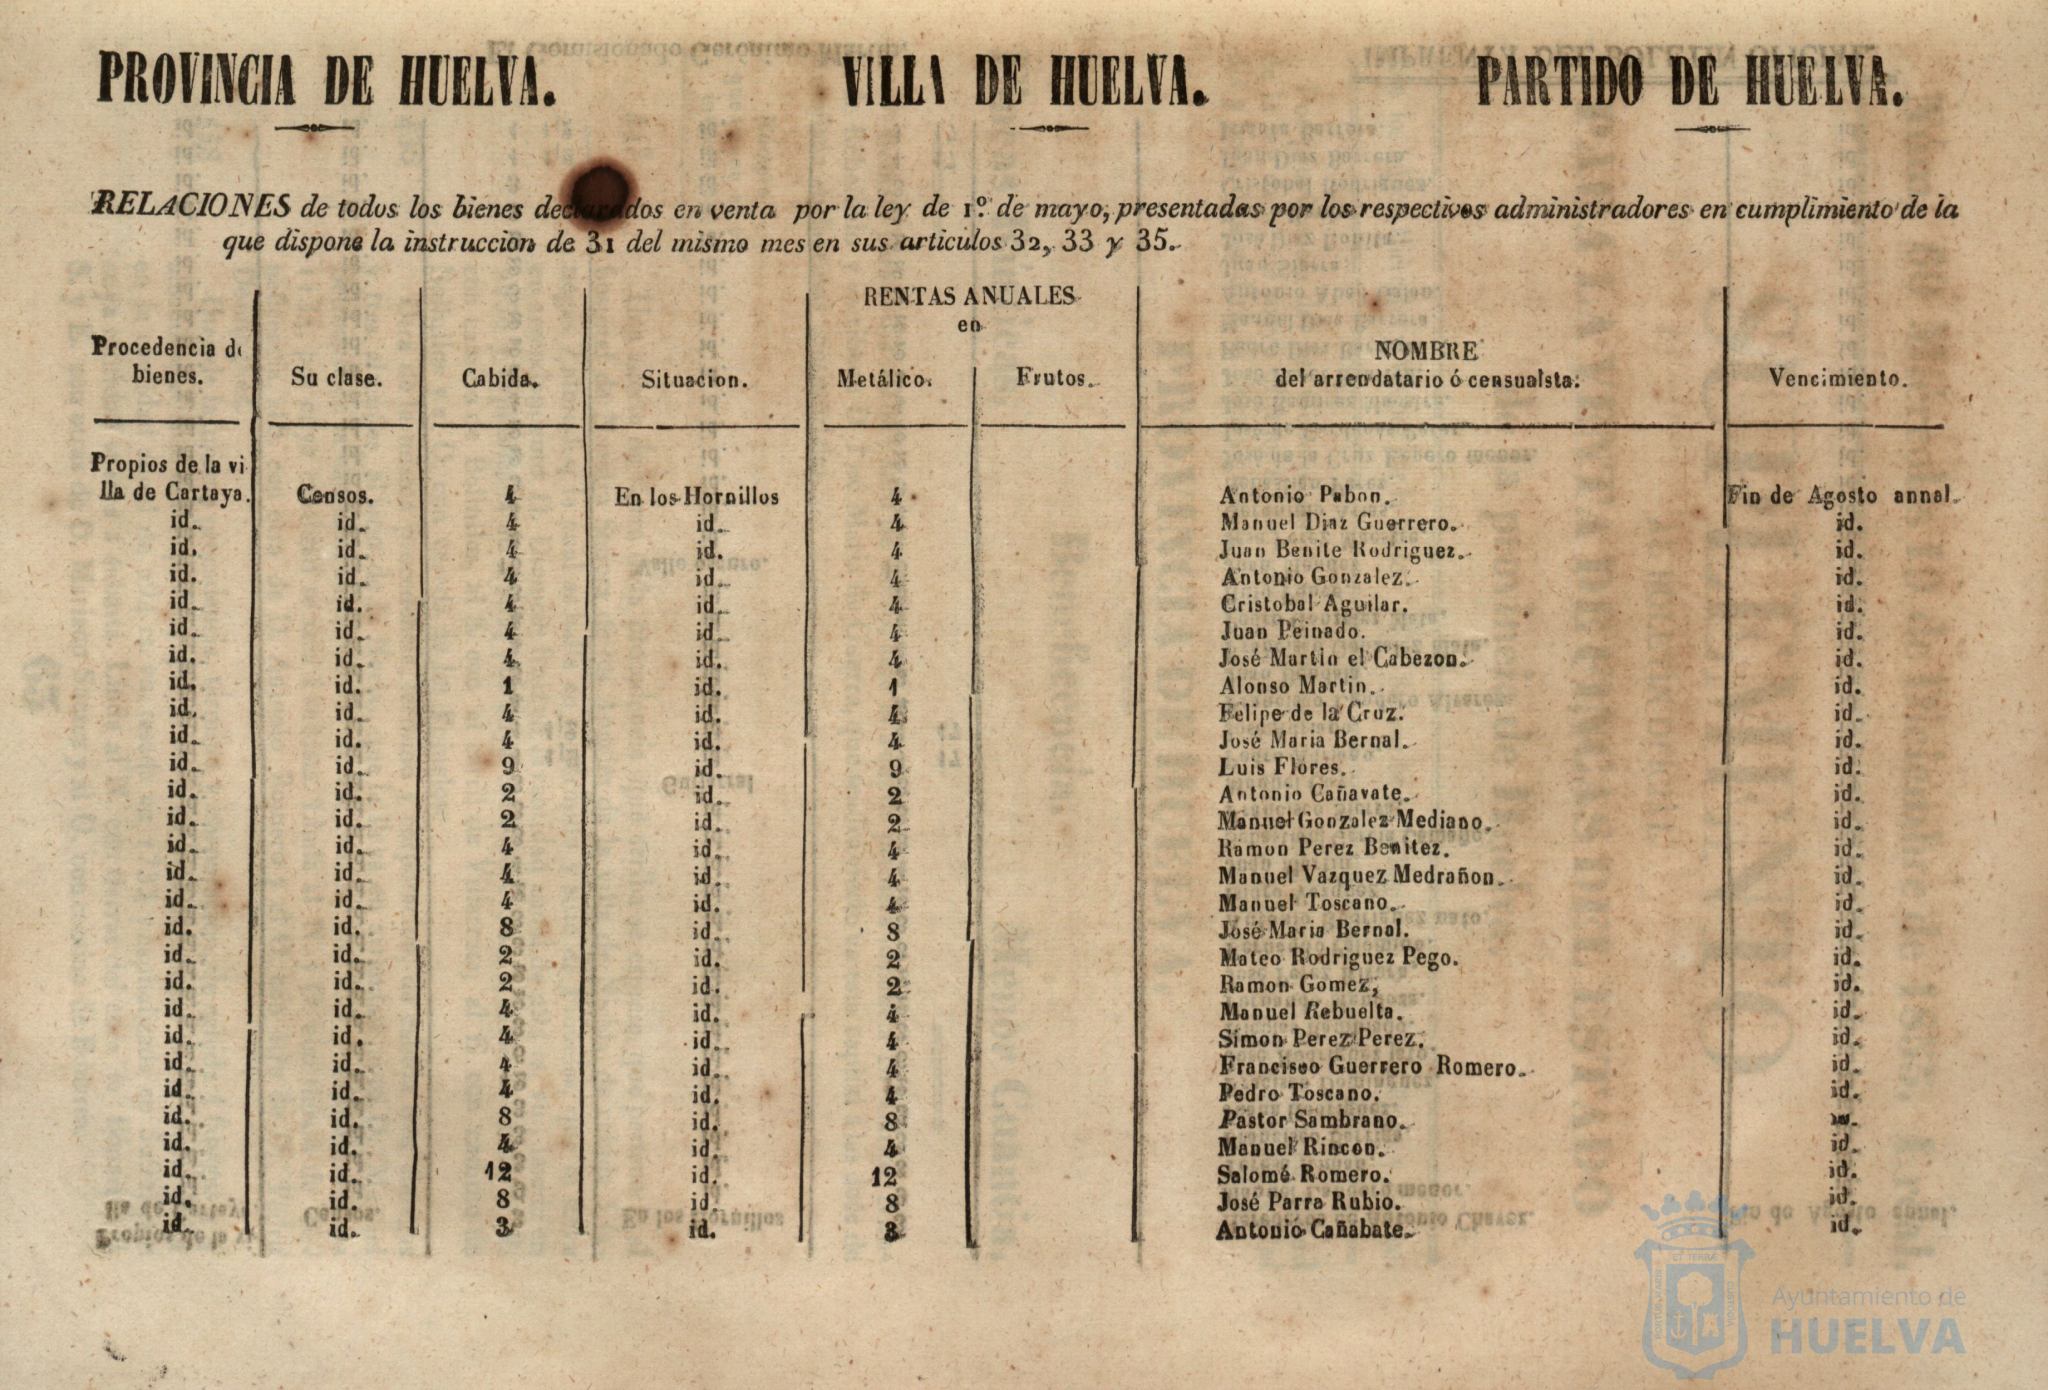 PROVINCIA DE HUELVA. VILLA DE HUELVA. PARTIDO DE HUELVA.
RELACIONES de todos los bienes declarados en venta por la ley de 1.º de mayo, presentadas por los respectivos administradores en cumplimiento de la
que dispone la instruccion de 31 del mismo mes en sus articulos 32, 33 y 35.
RENTAS ANUALES
en
Procedencia de NOMBRE
bienes. Su clase. Cabida. Situacion. Metálico. Frutos. del arrendatario ó censualsta. Vencimiento.
Propios de la vi
lla de Cartaya. Censos. 4 En los Hornillos 4 Antonio Pabon. Fin de Agosto annal.
id. id. 4 id. 4 Manuel Diaz Guerrero. id.
id. id. 4 id. 4 Juan Benite Rodriguez. id.
id. id. 4 id. 4 Antonio Gonzalez. id.
id. id. 4 id. 4 Cristobal Aguilar. id.
id. id. 4 id. 4 Juan Peinado. id.
id. id. 4 id. 4 José Martin el Cabezon. id.
id. id. 1 id. 1 Alonso Martin. id.
id. id. 4 id. 4 Felipe de la Cruz. id.
id. id. 4 id. 4 José Maria Bernal. id.
id. id. 9 id. 9 Luis Flores. id.
id. id. 2 id. 2 Antonio Cañavate. id.
id. id. 2 id. 2 Manuel Gonzalez Mediano. id.
id. id. 4 id. 4 Ramon Perez Benitez. id.
id. id. 4 id. 4 Manuel Vazquez Medrañon. id.
id. id. 4 id. 4 Manuel Toscano. id.
id. id. 8 id. 8 José Maria Bernal. id.
id. id. 2 id. 2 Mateo Rodriguez Pego. id.
id. id. 2 id. 2 Ramon Gomez, id.
id. id. 4 id. 4 Manuel Rebuelta. id.
id. id. 4 id. 4 Simon Perez Perez. id.
id. id. 4 id. 4 Francisco Guerrero Romero. id.
id. id. 4 id. 4 Pedro Toscano. id.
id. id. 8 id. 8 Pastor Sambrano.
id. id. 4 id. 4 Manuel Rincon. id.
id. id. 12 id. 12 Salomé Romero. id.
id. id. 8 id. 8 José Parra Rubio. id.
id. id. 3 id. 3 Antonio Cañabate. id.
Ayuntamiento de
HUELVA